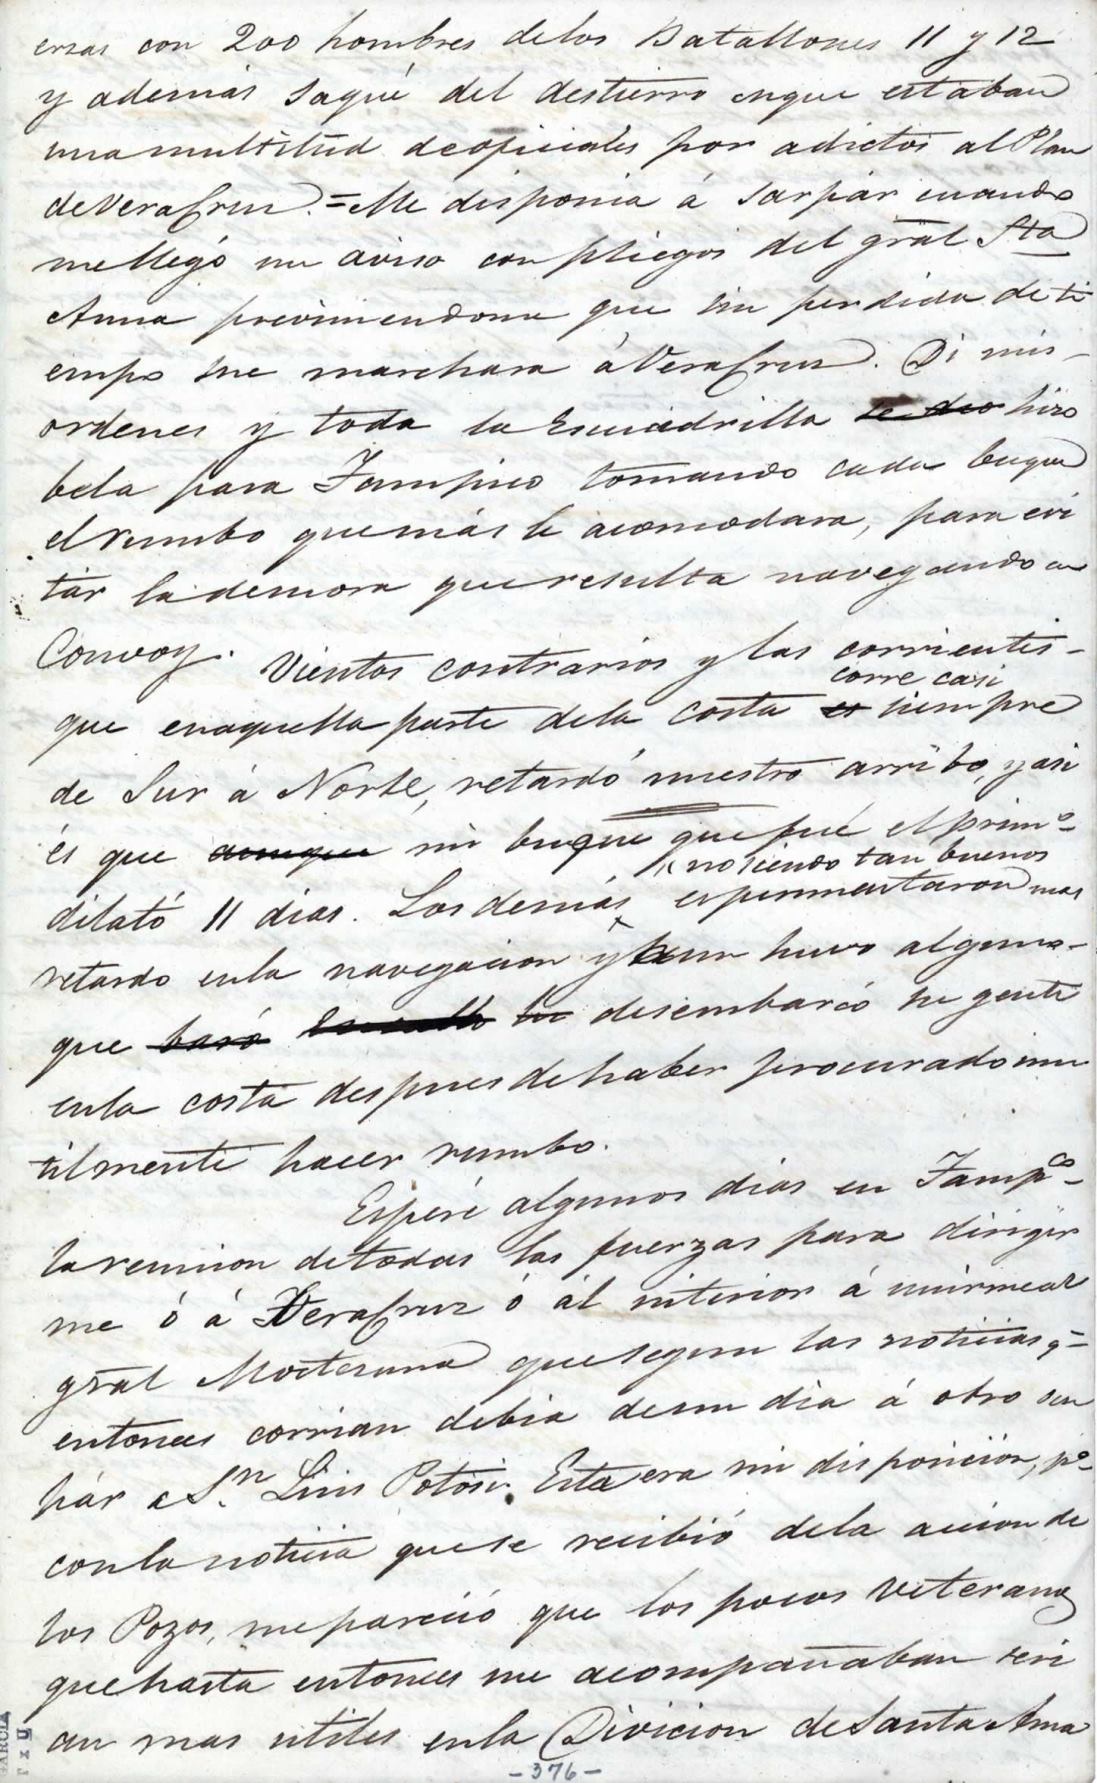 erzas con 200 hombres delos Batallones 11 y 12
y además saqué del destierro enque estaban
una multitud deoficiales por adictos al Plan
deVeraCruz. = Me disponia á sarpár cuando
mellegó un aviso con pliegos del gral Sta
Anna previniendome que sin perdida de ti
empo me marchara áVeraCruz. Di mis-
ordenes y toda la Escuadrilla se dio hizo
bela para Tampico tomando cada buque
el rumbo quemás le acomodara, para evi
tár la demora que resulta navegando en
Convoy. Vientos contrarios y las corrientes-
corre casi
que enaquella parte dela costa es siempre
de Sur á Norte, retardó nuestro arribo, y asi
és que aunque mi buque que fué el prim.o-
no siendo tan buenos
dilató 11 dias. Los demás esperimentaron mas
retardo enla navegacion y aun huvo alguno-
que baró desembarcó su gente
enla costa despues dehaber procurado inu
tilmente hacer rumbo.
Esperé algunos dias en Tampco-
la reunion detodas las fuerzas para dirigir
me ó á VeraCruz ó ál interior á unirmeal
gral Moctezuma que segun las noticias q-
entonces corrian debia deun dia á otro ocu
pár a S.n Luis Potosi. Esta era mi disposición, p.o-
conla noticia quese recibió dela accion de
los Pozos, me pareció que los pocos veteranos
quehasta entonces me acompañaban seri
an mas utiles enla Divicion deSanta Anna
-376-